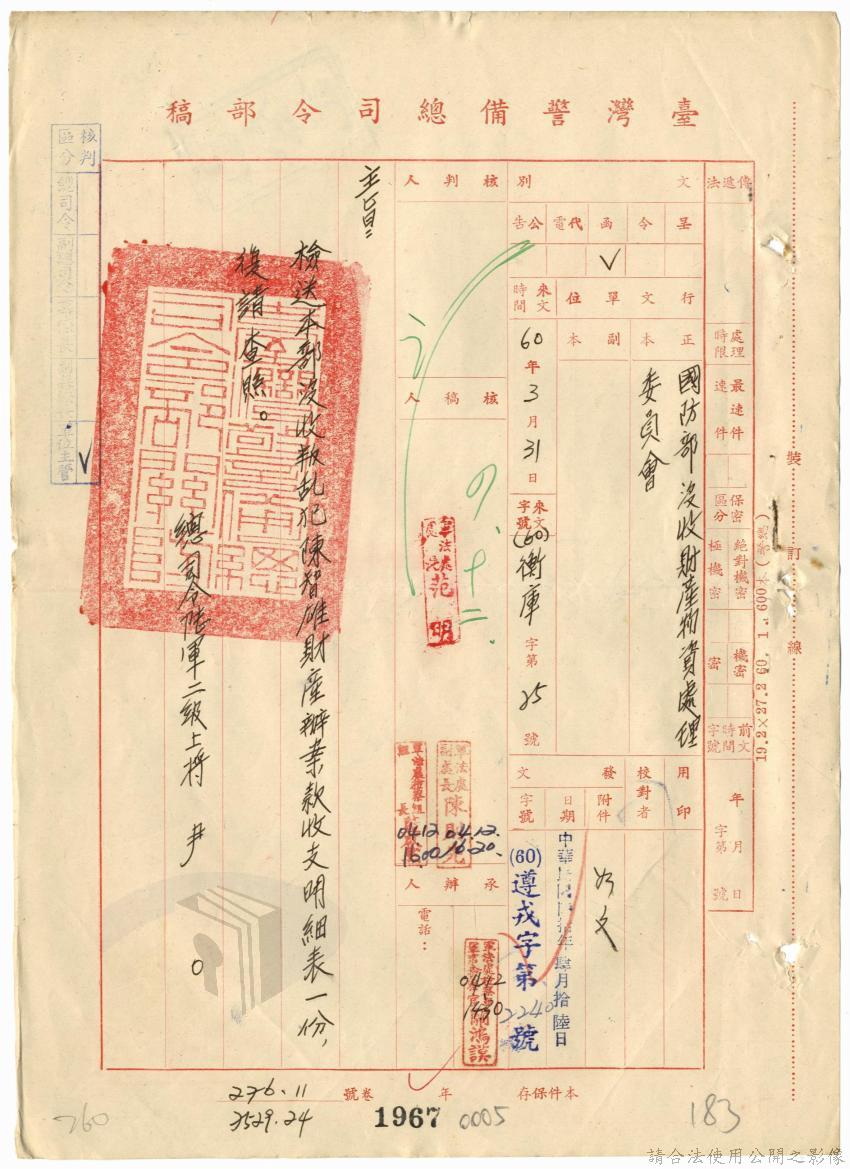 臺灣警備總司令部稿
傳遞法
處理時限
最速件
速件
保密區分
絕對機密
極機密
機密
密
前文時間字號
年 月 日
字第 號
文別
呈
令
函
代電
公告
✓
行文單位
正本
副本
國防部沒收財產物資處理
委員會
來文時間
60年3月31日
來文字號
(60)衡庫字第25號
用印
校對者
發文
附件
日期
字號
如文
中華民國陸拾年肆月拾陸日
(60)遵戎字第2240號
核判人
核稿人
承辦人
電話：
軍法處處長范明
軍法處副處長陳
04.12.
16.20.
04.12
1600
04.12
1430
主旨：
檢送本部沒收叛乱犯陳智雄財產辦案款收支明細表一份，
復請查照。
總司令陸軍二級上將 尹○
核判區分
總司令
✓
裝訂線
19.2×27.2 60. 1. 600本
本件保存 年
卷號
276.11
3529.24
1967
0005
183
760
請合法使用公開之影像